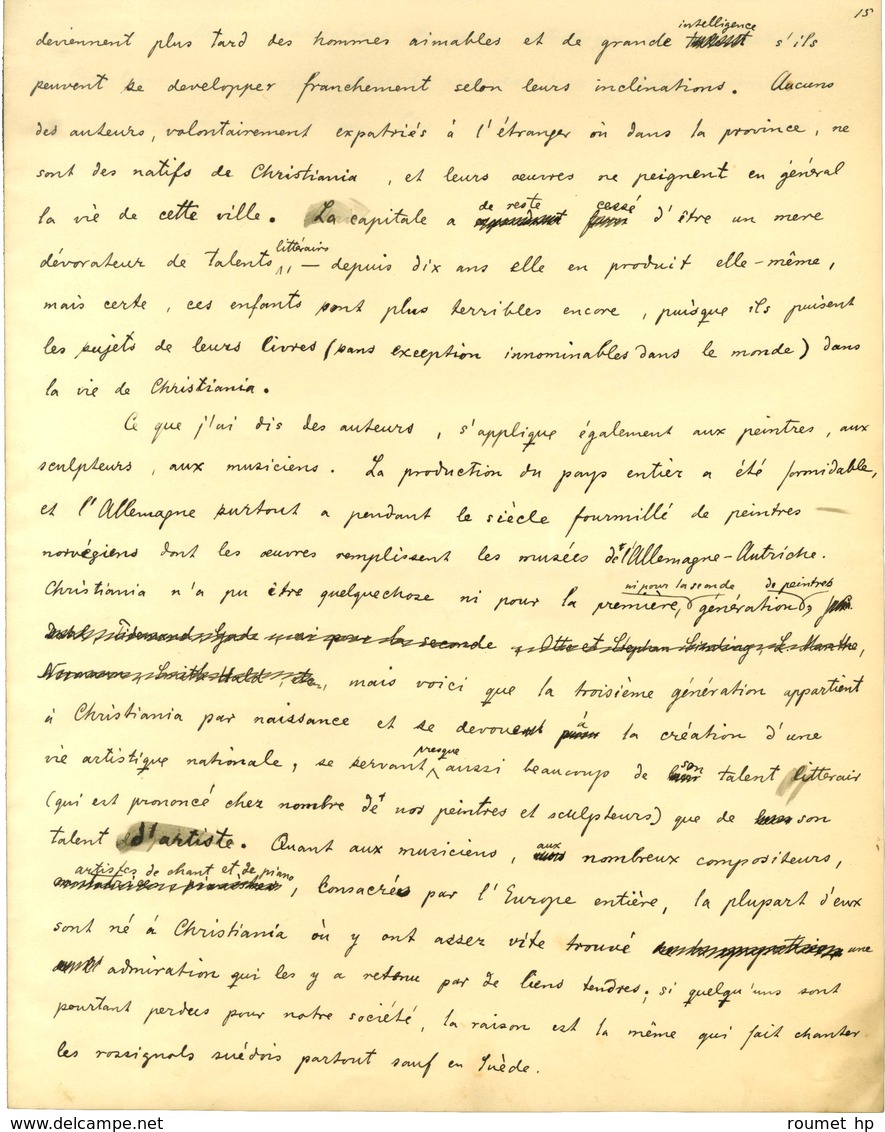 15
deviennent plus tard des hommes aimables et de grande intelligence s'ils
peuvent se developper franchement selon leurs inclinations. Aucuns
des auteurs, volontairement expatriés à l'étranger où dans la province, ne
sont des natifs de Christiania, et leurs œuvres ne peignent en général
la vie de cette ville. La capitale a de reste cessé d'être un mere
dévorateur de talents littérairs — depuis dix ans elle en produit elle-même,
mais certe, ces enfants sont plus terribles encore, puisque ils puisent
les sujets de leurs livres (sans exception innominables dans le monde) dans
la vie de Christiania.
Ce que j'ai dis des auteurs, s'applique également aux peintres, aux
sculpteurs, aux musiciens. La production du pays entièr a été formidable,
et l'Allemagne surtout a pendant le siècle fourmillé de peintres
norvégiens dont les œuvres remplissent les musées de l'Allemagne-Autriche.
Christiania n'a pu être quelquechose ni pour la première, ni pour la seconde génération de peintres,
mais voici que la troisième génération appartient
à Christiania par naissance et se devouent à la création d'une
vie artistique nationale, se servant presque aussi beaucoup de son talent litterair
(qui est prononcé chez nombre de nos peintres et sculpteurs) que de son
talent d'artiste. Quant aux musiciens, aux nombreux compositeurs,
artistes de chant et de piano, consacrés par l'Europe entière, la plupart d'eux
sont né à Christiania où y ont assez vite trouvé une
admiration qui les y a retenu par de liens tendres; si quelqu'uns sont
pourtant perdus pour notre société, la raison est la même qui fait chanter
les rossignols suédois partout sauf en Suède.
roumet hp